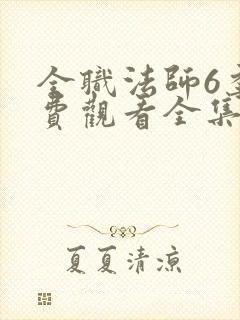 全職法師6
費觀看全集
夏夏清涼